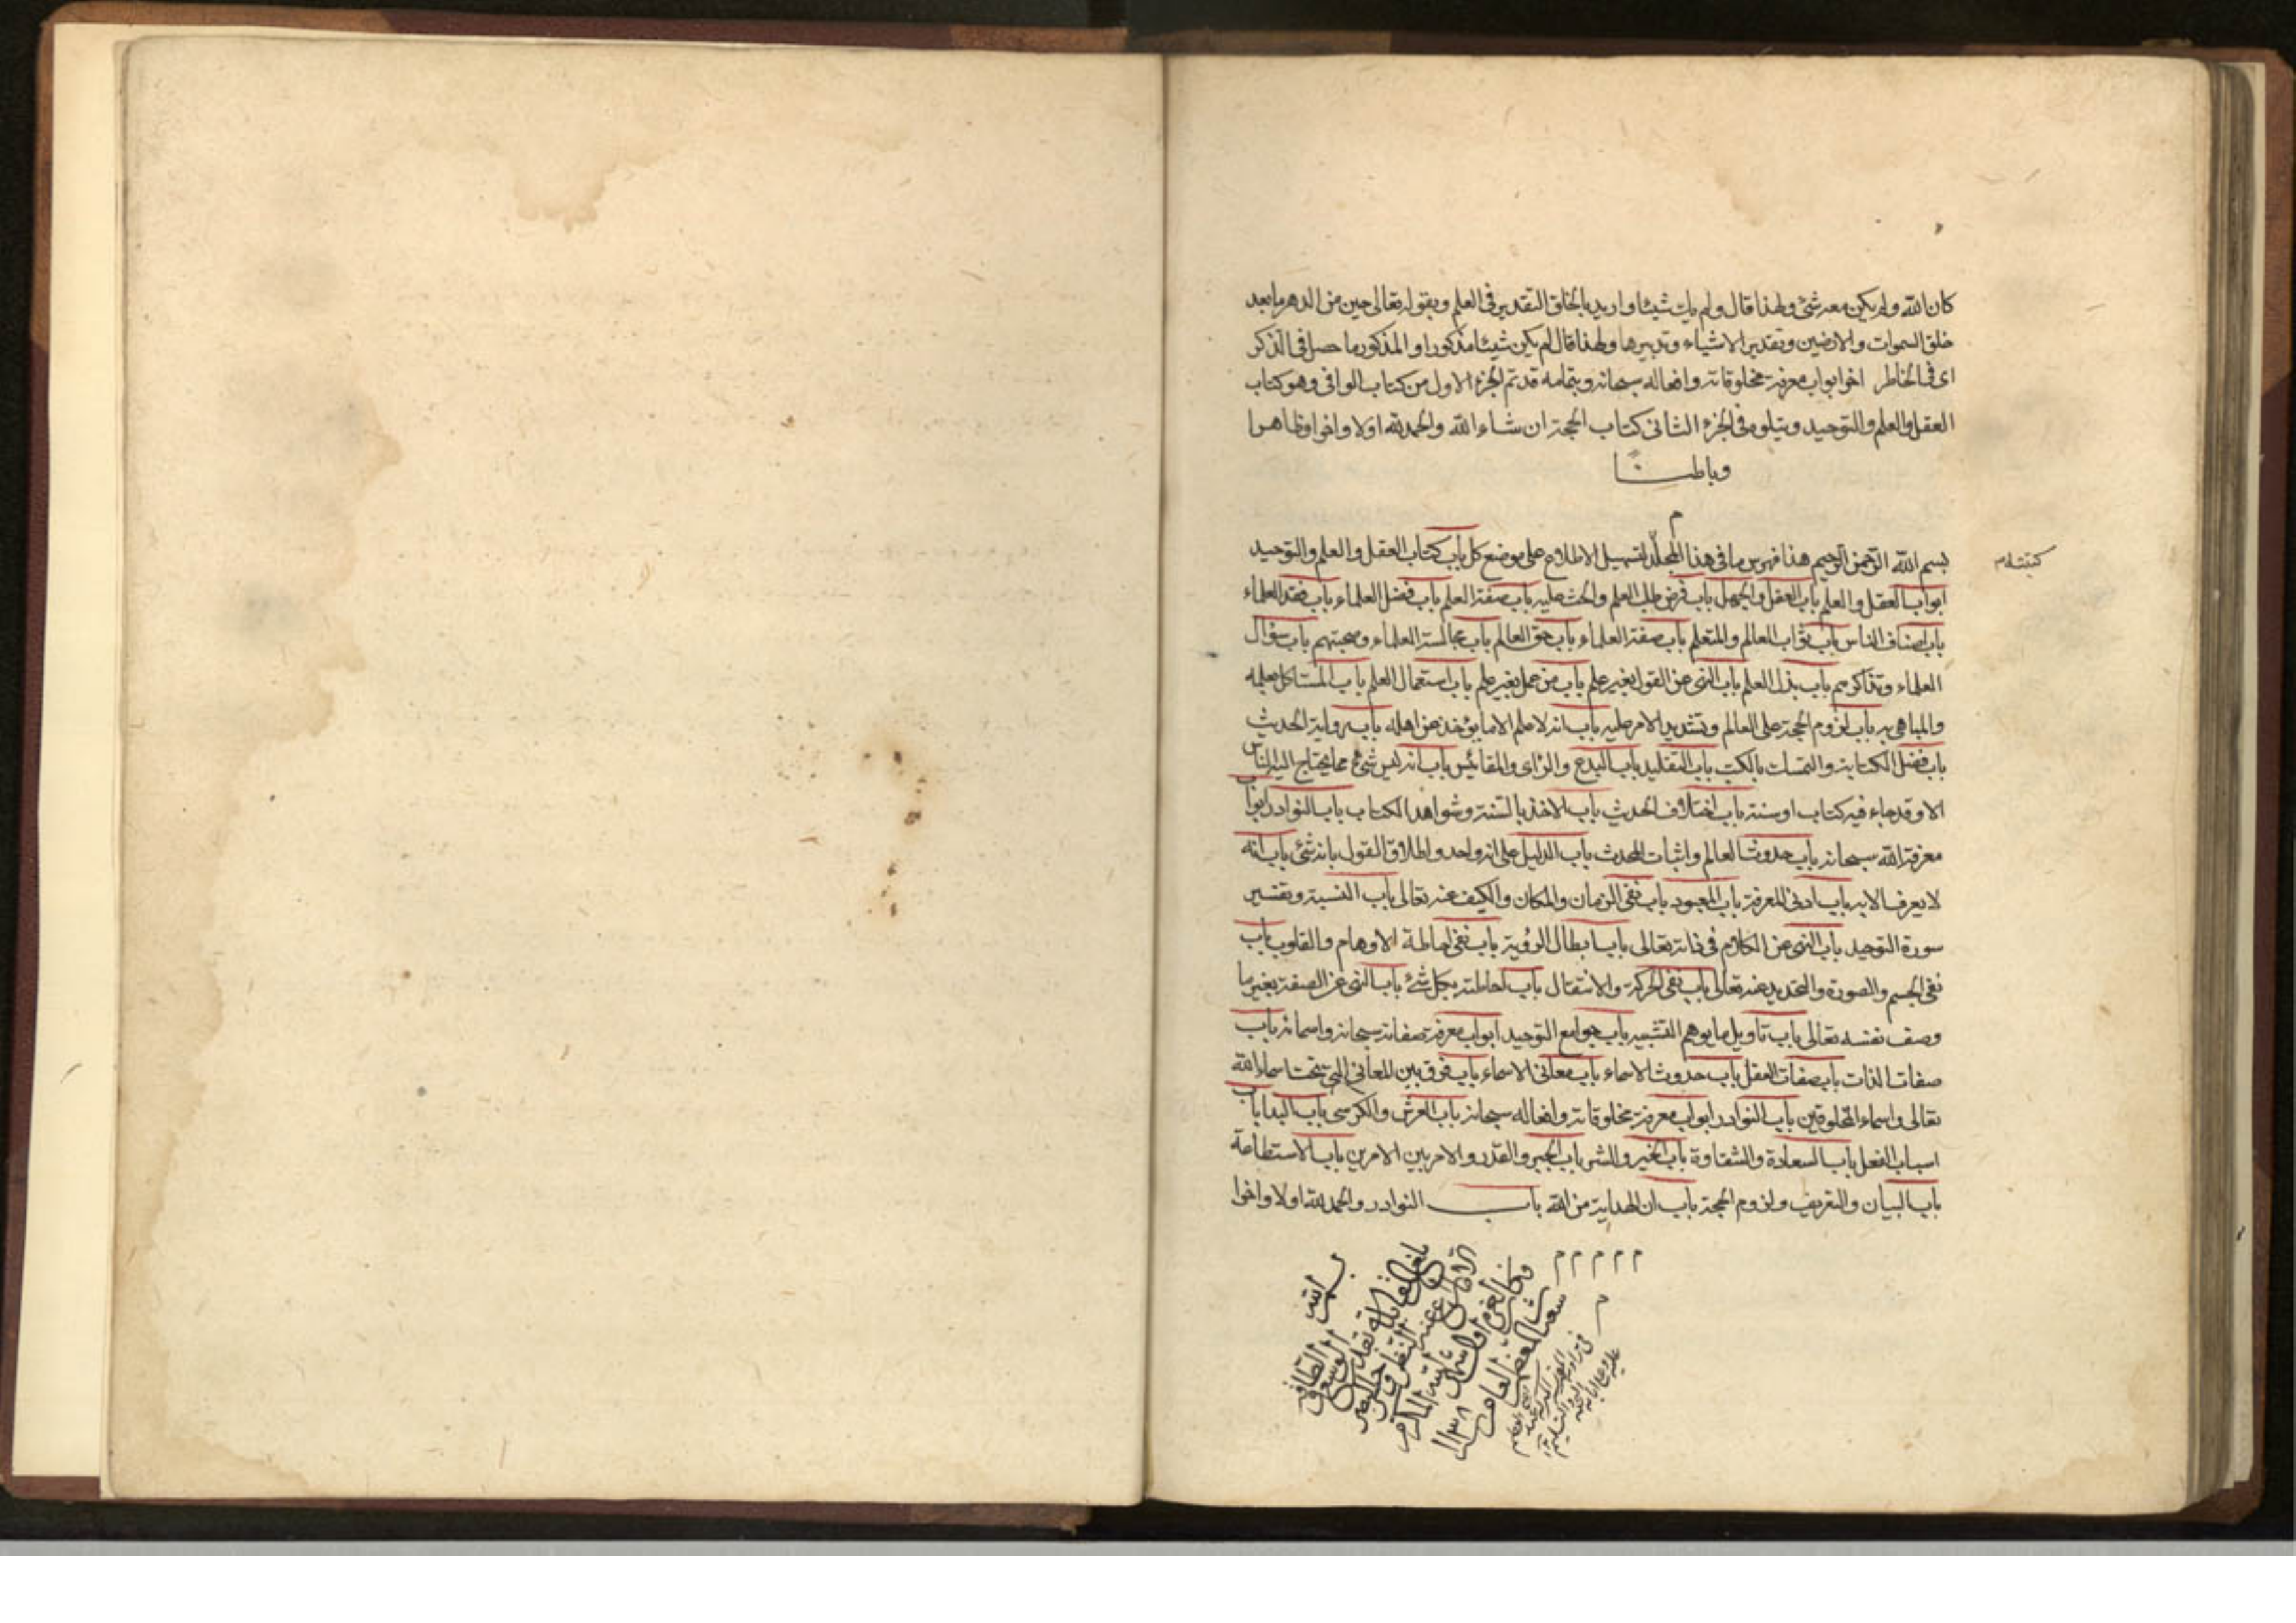 كان الله ولم يكن معه شئ ولهذا قال ولم يك شيئا واريد بالخلق التقدير في العلم وبقوله تعالى حين من الدهر ما بعد
خلق السموات والارضين وتقدير الاشياء وتدبيرها ولهذا قال لم يكن شيئا مذكورا والمذكور ما حصل في الذكر
اى في الخاطر اخر ابواب معرفة مخلوقاته وافعاله سبحانه وبتمامه قد تم الجزء الاول من كتاب الوافى وهو كتاب
العقل والعلم والتوحيد ويتلوه في الجزء الثانى كتاب الحجة ان شاء الله والحمد لله اولا واخرا وظاهرا
وباطنـــا
م
بسم الله الرحمن الرحيم هذا فهرس ما في هذا المجلد لتسهيل الاطلاع على موضع كل باب كتاب العقل والعلم والتوحيد
ابواب العقل والعلم باب العقل والجهل باب فرض طلب العلم والحث عليه باب صفة العلم باب فضل العلماء باب فقد العلماء
باب اصناف الناس باب ثواب العالم والمتعلم باب صفة العلماء باب حق العالم باب مجالسة العلماء وصحبتهم باب سؤال
العلماء وتذاكرهم باب بذل العلم باب النهى عن القول بغير علم باب من عمل بغير علم باب استعمال العلم باب المستاكل بعلمه
والمباهى به باب لزوم الحجة على العالم وتشديد الامر عليه باب انه لا علم الا ما يؤخذ عن اهله باب رواية الحديث
باب فضل الكتابة والتمسك بالكتب باب التقليد باب البدع والراى والمقائيس باب انه ليس شئ مما يحتاج اليه الناس
الا وقد جاء فيه كتاب او سنة باب اختلاف الحديث باب الاخذ بالسنة وشواهد الكتاب باب النوادر ابواب
معرفة الله سبحانه باب حدوث العالم واثبات المحدث باب الدليل على انه واحد واطلاق القول بانه شئ باب انه
لا يعرف الا به باب ادنى المعرفة باب المعبود باب نفى الزمان والمكان والكيف عنه تعالى باب النسبة وتفسير
سورة التوحيد باب النهى عن الكلام في ذاته تعالى باب ابطال الرؤية باب نفى احاطة الاوهام والقلوب باب
نفى الجسم والصورة والتحديد عنه تعالى باب نفى الحركة والانتقال باب احاطته بكل شئ باب النهى عن الصفة بغير ما
وصف نفسه تعالى باب تاويل ما يوهم التشبيه باب جوامع التوحيد ابواب معرفة صفاته سبحانه واسمائه باب
صفات الذات باب صفات الفعل باب حدوث الاسماء باب معانى الاسماء باب فرق بين المعانى التى تحت اسماء الله
تعالى واسماء المخلوقين باب النوادر ابواب معرفة مخلوقاته وافعاله سبحانه باب العرش والكرسى باب البدا باب
اسباب الفعل باب السعادة والشقاوة باب الخير والشر باب الجبر والقدر والامر بين الامرين باب الاستطاعة
باب البيان والتعريف ولزوم الحجة باب ان الهداية من الله باب النوادر والحمد لله اولا واخرا
م م م م م
م
بسم الله
١١٣٨